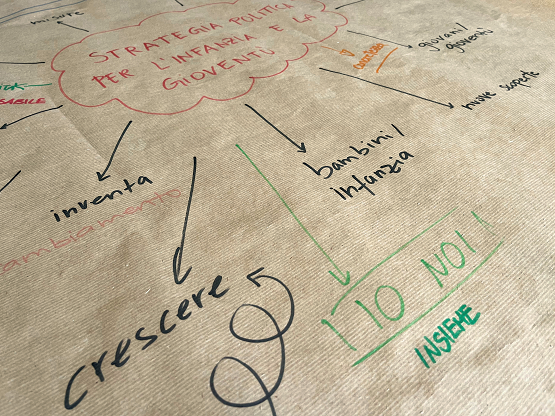 STRATEGIA POLITICA
PER L'INFANZIA E LA
GIOVENTÙ
giovani/
gioventù
nuove scoperte
SABILE
bambini/
infanzia
inventa
ambiamento
crescere
IO NOI
INSIEME